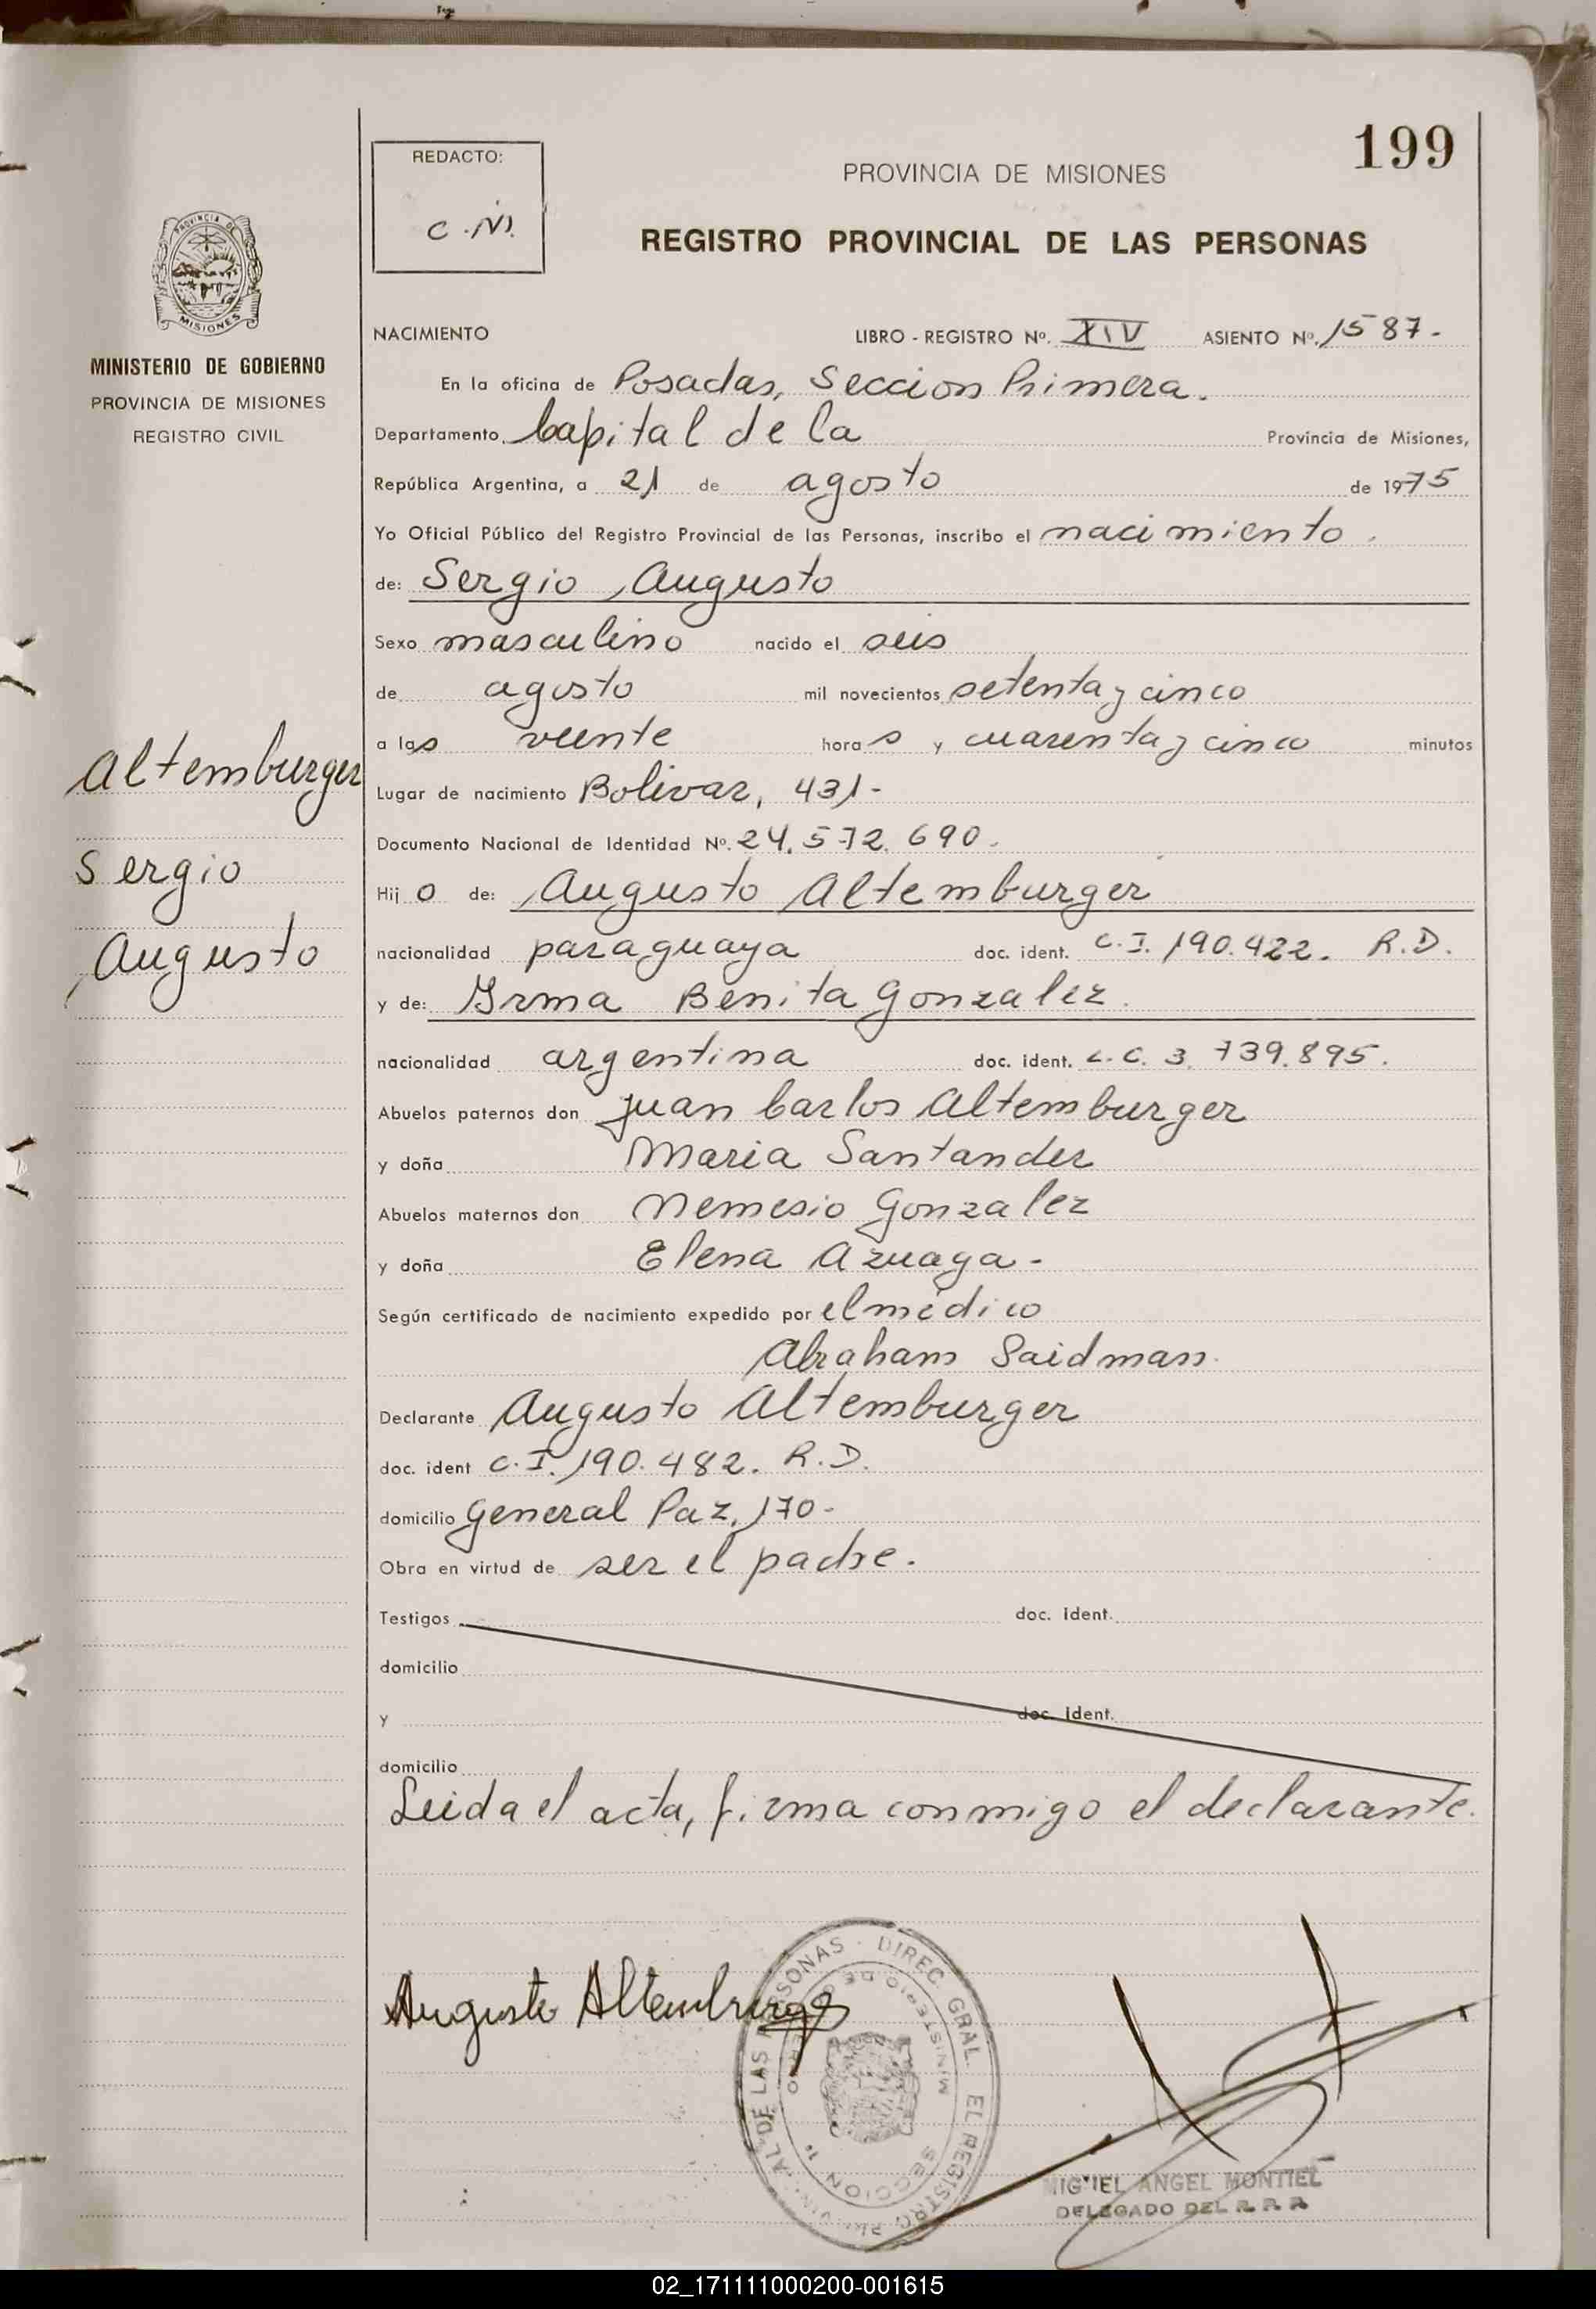 199
REDACTO:
C.M.
PROVINCIA DE MISIONES
REGISTRO PROVINCIAL DE LAS PERSONAS
PROVINCIA DE
MISIONES
MINISTERIO DE GOBIERNO
PROVINCIA DE MISIONES
REGISTRO CIVIL
NACIMIENTO LIBRO - REGISTRO Nº. XIV ASIENTO Nº. 1587-
En la oficina de Posadas, Seccion Primera.
Departamento Capital de la Provincia de Misiones,
República Argentina, a 21 de agosto de 1975
Yo Oficial Público del Registro Provincial de las Personas, inscribo el nacimiento.
de: Sergio Augusto
Sexo masculino nacido el seis
de agosto mil novecientos setenta y cinco
a las veinte horas y cuarenta y cinco minutos
Altemburger
Sergio
Augusto
Lugar de nacimiento Bolivar, 431-
Documento Nacional de Identidad Nº. 24.572.690.
Hijo de: Augusto Altemburger
nacionalidad paraguaya doc. ident. C.I. 190.422. R.D.
y de: Irma Benita Gonzalez.
nacionalidad argentina doc. ident. L.C. 3.739.895.
Abuelos paternos don Juan Carlos Altemburger
y doña Maria Santander
Abuelos maternos don Nemesio Gonzalez
y doña Elena Azuaga-
Según certificado de nacimiento expedido por el médico
Abraham Saidman.
Declarante Augusto Altemburger
doc. ident C.I. 190.482. R.D.
domicilio General Paz, 170-
Obra en virtud de ser el padre.
Testigos doc. ident.
domicilio
y doc. ident.
domicilio
Leida el acta, firma conmigo el declarante.
Augusto Altemburger
DIREC. GRAL. EL REGISTRO DE LAS PERSONAS
MINISTERIO DE
SECCION 1ª
MIGUEL ANGEL MONTIEL
DELEGADO DEL R.P.P.
02_171111000200-001615